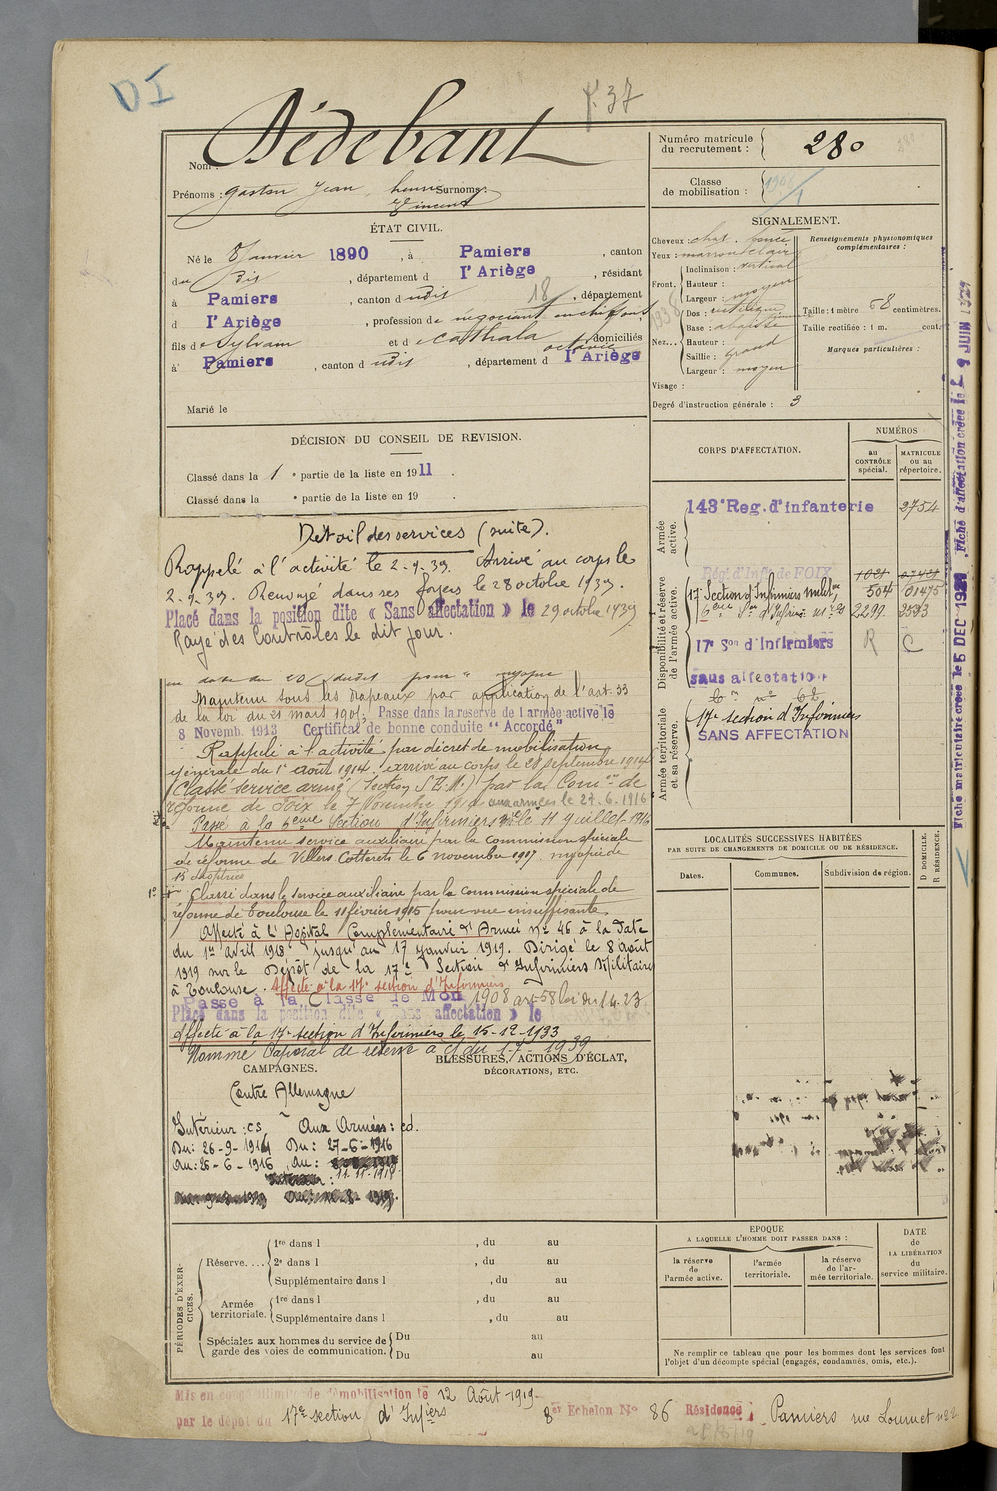 DI
f. 37
Nom : Dédebant
Prénoms : Gaston Jean henri Surnoms :
Vincent
Numéro matricule du recrutement : 280
Classe de mobilisation : 1908/1
ÉTAT CIVIL.
Né le 8 Janvier 1890, à Pamiers, canton
du dis, département d l'Ariège, résidant
à Pamiers, canton d udit, département
18
d l'Ariège, profession de negociant en chiffons
fils de Sylvain et de Cathala octavie domiciliés
à Pamiers, canton d udit, département d l'Ariège
Marié le
SIGNALEMENT.
Cheveux : chat. foncé
Yeux : marron clair
Front. Inclinaison : vertical
Hauteur :
Largeur : moyen
Nez... Dos : rectiligne
Base : abaissée
Hauteur :
Saillie : grand
Largeur : moyen
Visage :
Degré d'instruction générale : 3
Renseignements physionomiques complémentaires :
Taille : 1 mètre 68 centimètres.
Taille rectifiée : 1 m. cent.
Marques particulières :
1938
DÉCISION DU CONSEIL DE REVISION.
Classé dans la 1 e partie de la liste en 1911.
Classé dans la e partie de la liste en 19 .
Détail des services (suite).
Rappelé à l'activité le 2-9-39. Arrivé au corps le
2-9-39. Renvoyé dans ses foyers le 28 octobre 1939.
Placé dans la position dite « Sans affectation » le 29 octobre 1939
Rayé des Contrôles le dit jour.
en date du 20 dudit pour " myopie
Maintenu sous les drapeaux par application de l'art. 33
de la loi du 21 mars 1905, Passe dans la reserve de l armée active le
8 Novemb. 1913 Certificat de bonne conduite "Accordé"
Rappelé à l'activité par décret de mobilisation
générale du 1er août 1914. arrivé au corps le 28 septembre 1914
Classé service armé (Section S.E.M.) par la Comon de
réforme de Foix le 7 Novembre 19 aux armées le 27.6.1916
Passé à la 6eme Section d'Infirmiers Mre le 11 Juillet 1916
Maintenu service auxiliaire par la commission spéciale
de réforme de Villers Cotterets le 6 novembre 1917 myopie de
13 dioptries
1° Classé dans le service auxiliaire par la commission spéciale de
réforme de Toulouse le 11 février 1915 pour vue insuffisante
Affecté à l'Hôpital Complémentaire d'Armée n° 46 à la date
du 1er avril 1918 jusqu'au 17 janvier 1919. Dirigé le 8 août
1919 sur le Dépôt de la 17e Section d'Infirmiers Militaires
à Toulouse. Affecté à la 17e section d'Infirmiers
Passe à la Classe de Mon 1908 art 58 loi du 1.4.23.
Placé dans la position dite « Sans affectation » le
affecté à la 17e section d'Infirmiers le 15-12-1933
Nommé Caporal de réserve à dd du 1-7-1939
CORPS D'AFFECTATION.
NUMÉROS
au CONTRÔLE spécial.
MATRICULE ou au répertoire.
Armée active.
143e Reg. d'infanterie 2754
Disponibilité et réserve de l'armée active.
Régt d'Infie de FOIX 1021
17e Section d'Infirmiers militres 504 01475
6eme Son d'Infirm mres 2299 2593
17e Son d'Infirmiers R C
sans affectation
Armée territoriale et sa réserve.
17e section d'Infirmiers
SANS AFFECTATION
LOCALITÉS SUCCESSIVES HABITÉES
PAR SUITE DE CHANGEMENTS DE DOMICILE OU DE RÉSIDENCE.
Dates.
Communes.
Subdivision de région.
D DOMICILE.
R RÉSIDENCE.
Fiche matriculaire créée le 5 DEC 1929 Fiche d'affectation créée le 9 JUIN 1929
CAMPAGNES.
Contre Allemagne
Intérieur : cs Aux Armées : cd.
Du : 26-9-1914 Du : 27-6-1916
Au : 26-6-1916 Au :
11-11-1918
BLESSURES, ACTIONS D'ÉCLAT,
DÉCORATIONS, ETC.
PÉRIODES D'EXERCICES.
Réserve....
1re dans l , du au
2e dans l , du au
Supplémentaire dans l , du au
Armée territoriale.
1re dans l , du au
Supplémentaire dans l , du au
Spéciales aux hommes du service de garde des voies de communication.
Du au
Du au
EPOQUE
A LAQUELLE L'HOMME DOIT PASSER DANS :
la réserve de l'armée active.
l'armée territoriale.
la réserve de l'armée territoriale.
DATE de LA LIBÉRATION du service militaire.
Ne remplir ce tableau que pour les hommes dont les services font
l'objet d'un décompte spécial (engagés, condamnés, omis, etc.).
Mis en congé illimité de démobilisation le 12 Août 1919
par le dépôt du 17e section d'Infiers 8er Echelon No 86 Résidence : Pamiers rue Loumet n° 22